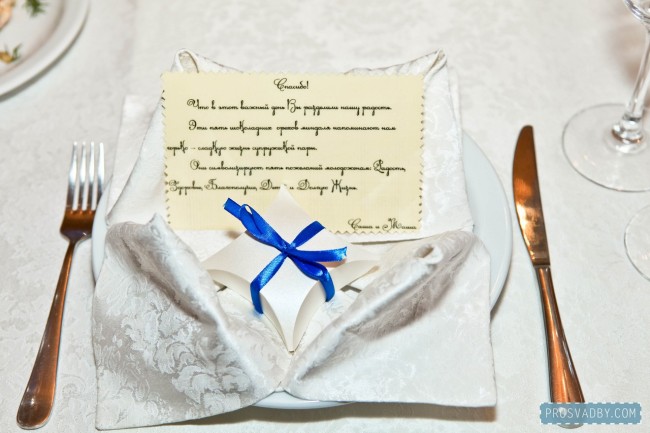 Спасибо!
Что в этот важный день Вы разделили нашу радость.
Эти пять шоколадных орехов миндаля напоминают нам
горько - сладкую жизнь супружеской пары.
Они символизируют пять пожеланий молодоженам: Радость,
Здоровье, Благополучие, Дети и Долгую Жизнь.
Саша и
PROSVADBY.COM